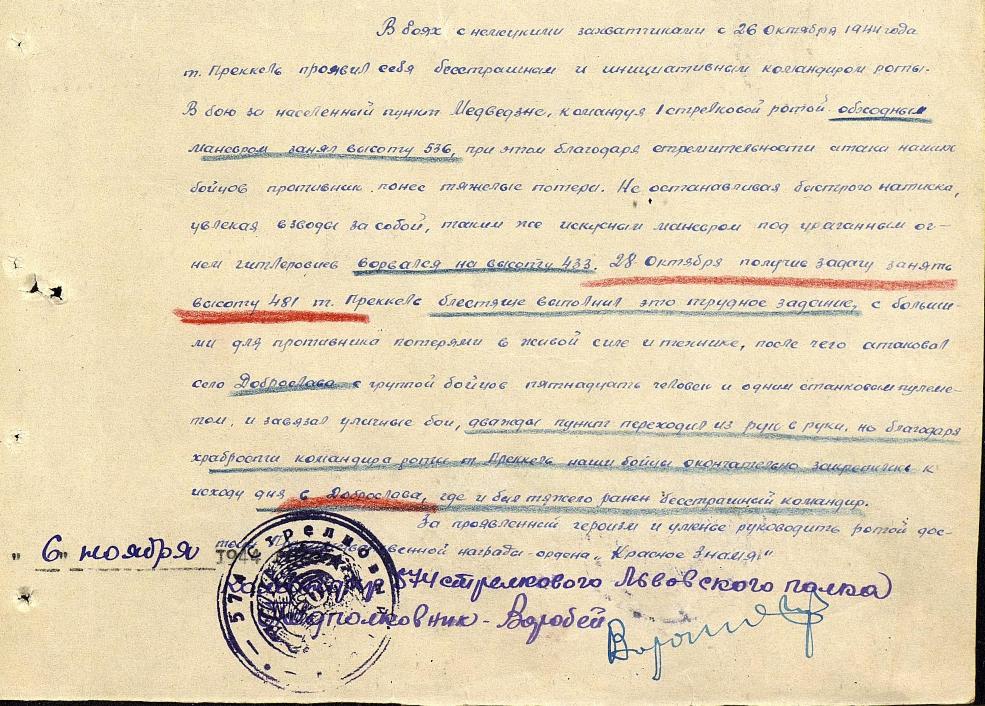 В боях с немецкими захватчиками с 26 октября 1944 года
т. Преккель проявил себя бесстрашным и инициативным командиром роты.
В бою за населенный пункт Медведзне, командуя 1 стрелковой ротой обходным
маневром занял высоту 536, при этом благодаря стремительности атаки наших
бойцов противник понес тяжелые потери. Не останавливая быстрого натиска,
увлекая взводы за собой, таким же искусным маневром под ураганным ог-
нем гитлеровцев ворвался на высоту 433. 28 октября получив задачу занять
высоту 481 т. Преккель блестяще выполнил это трудное задание, с больши-
ми для противника потерями в живой силе и технике, после чего атаковал
село Доброслава с группой бойцов пятнадцать человек и одним станковым пулеме-
том, и завязал уличные бои, дважды пункт переходил из рук в руки, но благодаря
храбрости командира роты т. Преккель наши бойцы окончательно закрепились к
исходу дня в Доброслава, где и был тяжело ранен бесстрашный командир.
За проявленный героизм и умение руководить ротой дос-
венной награды-ордена „Красное Знамя"
„6" ноября 194
574 стрелкового Львовского полка
подполковник - Воробей
574 стрелков